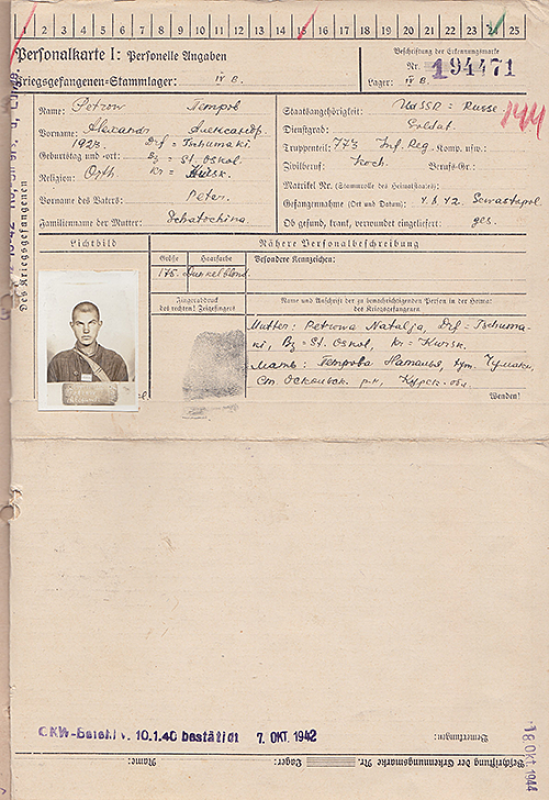 1 2 3 4 5 6 7 8 9 10 11 12 13 14 15 16 17 18 19 20 21 22 23 24 25
Personalkarte I: Personelle Angaben
Kriegsgefangenen-Stammlager: IV B.
Beschriftung der Erkennungsmarke
Nr. 194471
Lager: IV B.
Des Kriegsgefangenen
Name: Petrow Петров
Vorname: Alexandr Александр.
Geburtstag und -ort: 1923. Drf = Tschumaki.
Bz = St. Oskol.
Religion: Orth. Kr = Kursk.
Vorname des Vaters: Peter.
Familienname der Mutter: Schatochina.
Staatsangehörigkeit: UdSSR = Russe.
144
Dienstgrad: Soldat.
Truppenteil: 773 Inf. Reg. Komp. usw.:
Zivilberuf: Koch. Berufs-Gr.:
Matrikel Nr. (Stammrolle des Heimatstaates):
Gefangennahme (Ort und Datum): 4.8.42. Sewastopol.
Ob gesund, krank, verwundet eingeliefert: ges.
Lichtbild
Nähere Personalbeschreibung
Größe Haarfarbe Besondere Kennzeichen:
176. Dunkelblond.
Fingerabdruck
des rechten! Zeigefingers!
Name und Anschrift der zu benachrichtigenden Person in der Heimat
des Kriegsgefangenen
Mutter: Petrowa Natalja, Drf = Tschuma-
ki, Bz = St. Oskol, Kr = Kursk.
Мать: Петрова Наталья, хут. Чумаки,
Ст. Оскольск. р-н, Курск. обл.
Wenden!
OKW-Befehl v. 10.1.40 bestätigt 7. OKT. 1942
Bemerkungen:
Beschriftung der Erkennungsmarke Nr.
Lager:
Name:
16 Okt 1944